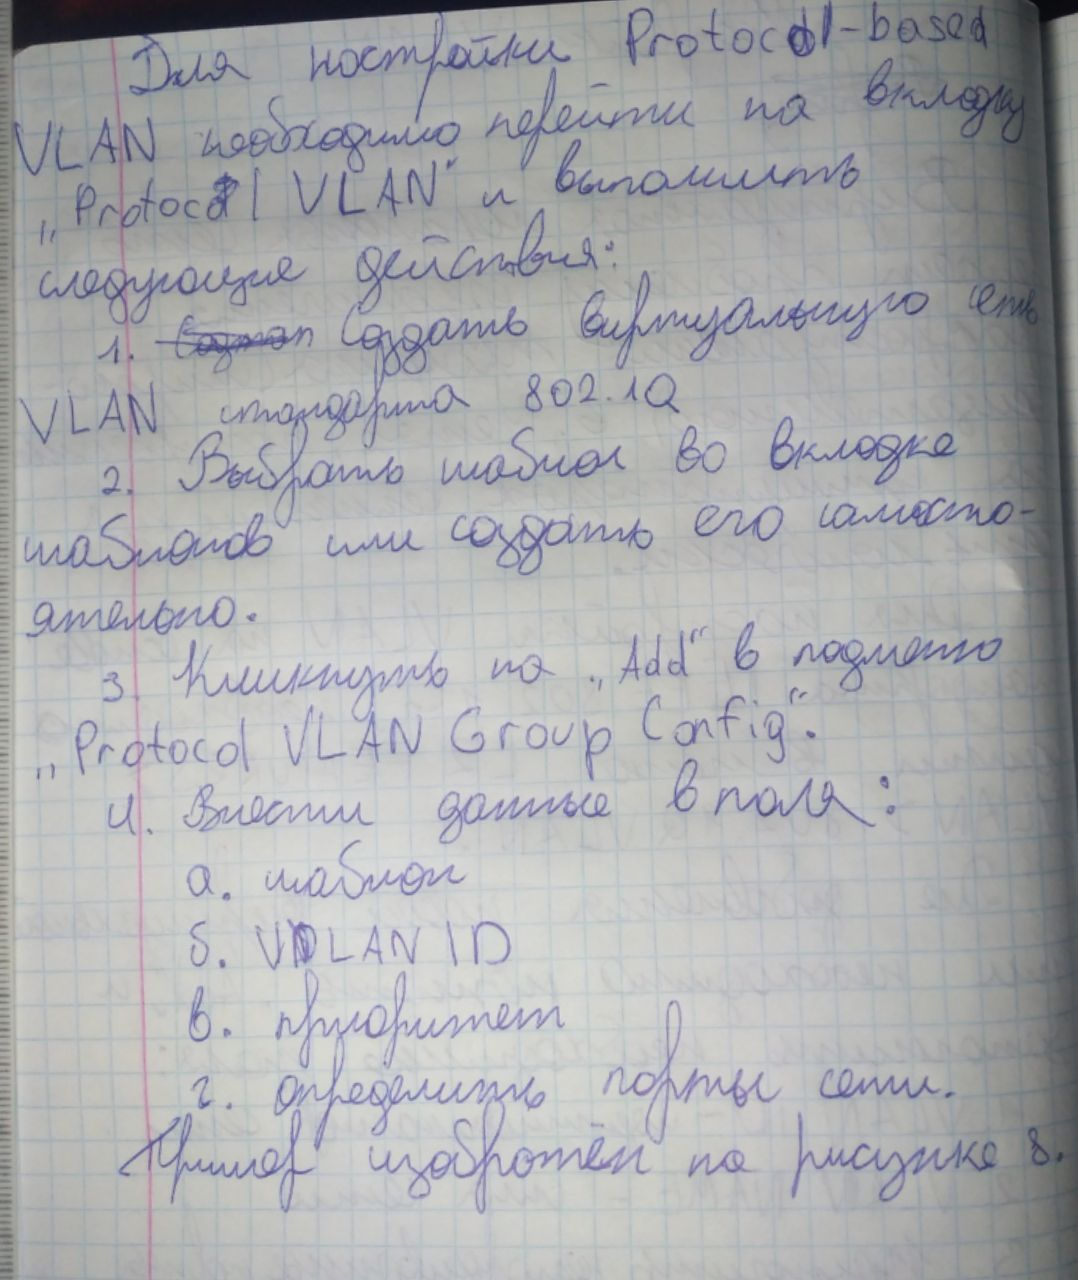 Для настройки Protocol-based
VLAN необходимо перейти на вкладку
„Protocol VLAN“ и выполнить
следующие действия:
1. Создать виртуальную сеть
VLAN стандарта 802.1Q
2. Выбрать шаблон во вкладке
шаблонов или создать его самосто-
ятельно.
3. Кликнуть на „Add“ в подменю
„Protocol VLAN Group Config“.
4. Внести данные в поля:
а. шаблон
б. VLAN ID
в. приоритет
г. определить порты сети.
Пример изображён на рисунке 8.